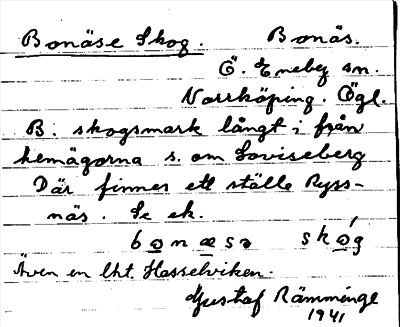 Bonäse Skog. Bonäs.
Ö. Eneby sn.
Norrköping. Ögl.
B: skogsmark långt ifrån
hemägorna s. om Loviseberg
Där finnes ett ställe Ryss-
näs. Se ek.
bonæsə skóg
Även en lht. Hasselviken.
Gustaf Rämminge
1941